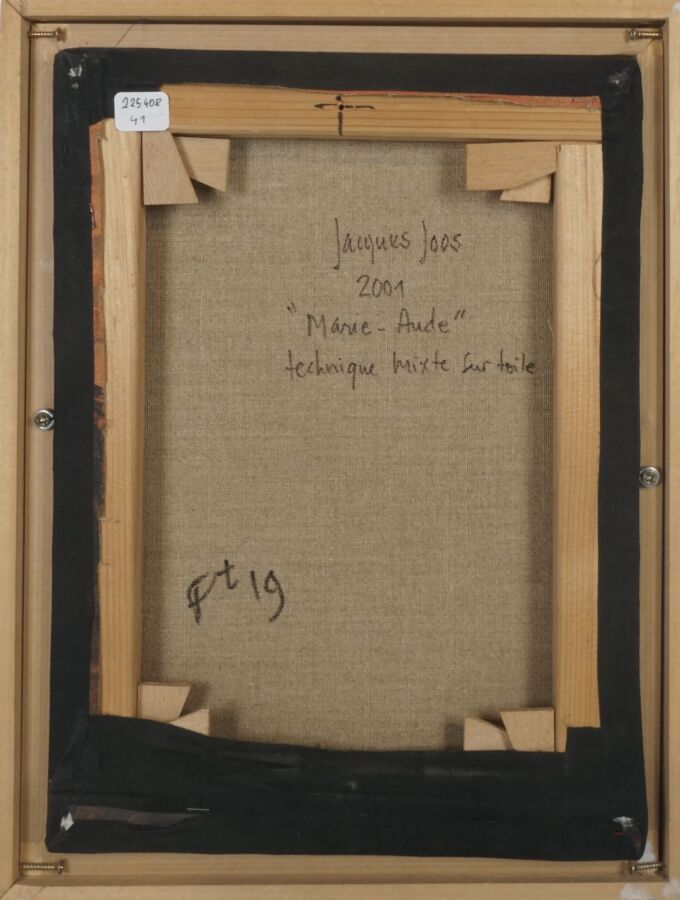 225408
41
Jacques Joos
2001
"Marie-Aude"
technique mixte sur toile
19